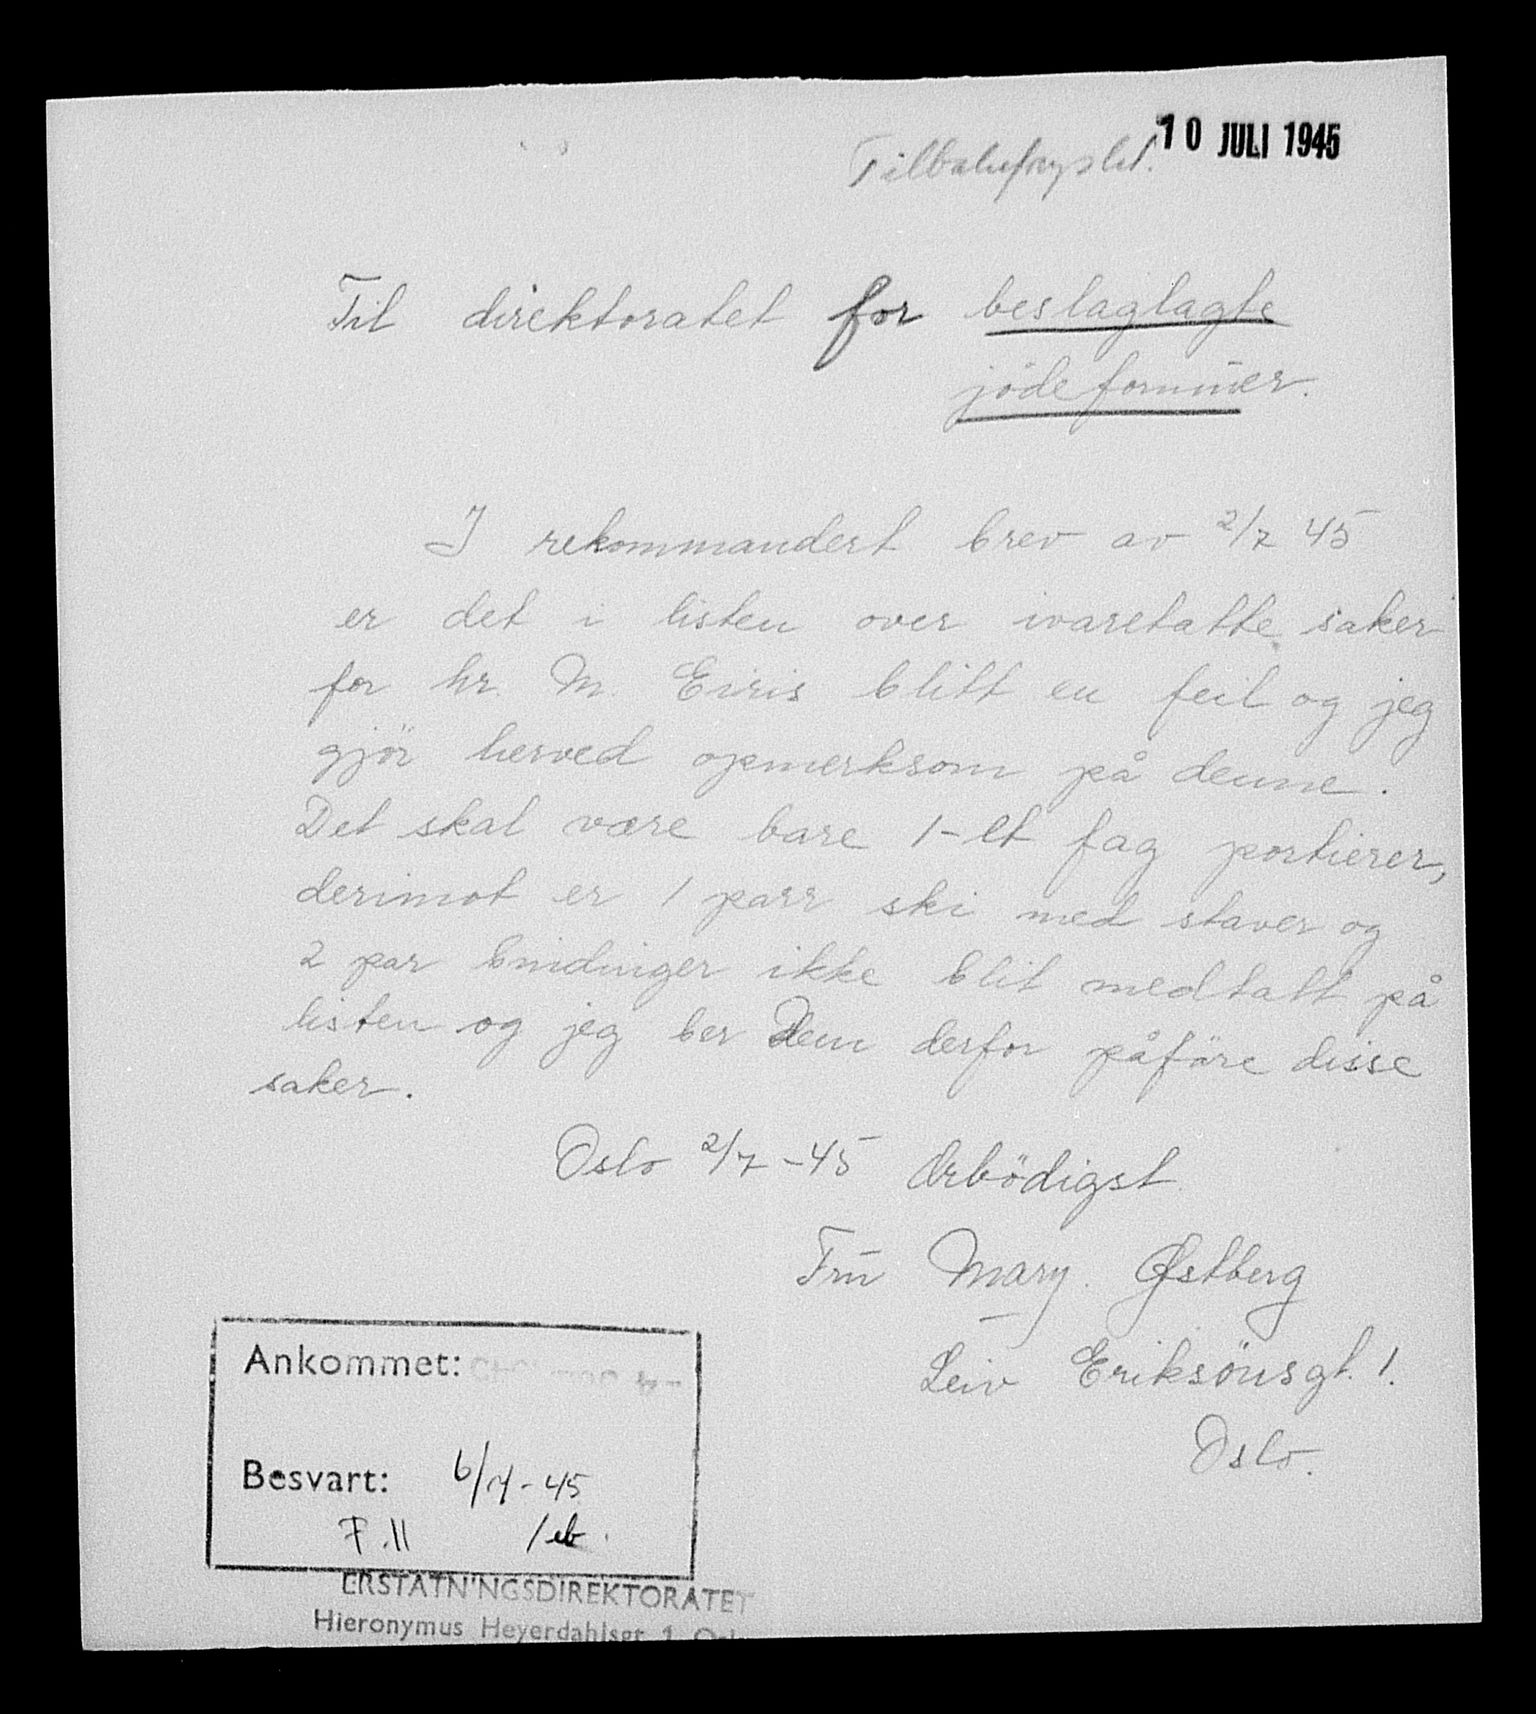 10 JULI 1945
Til direktoratet for beslaglagte
jödeformuer.
I rekommandert brev av 2/7 45
er det i listen over ivaretatte saker
for hr. M. Eiris blitt en feil og jeg
gjör herved opmerksom på denne.
Det skal være bare 1-et fag portierer,
derimot er 1 parr ski med staver og
2 par bindinger ikke blit medtatt på
listen og jeg ber Dem derfor påföre disse
saker.
Oslo 2/7-45 Ærbödigst
Frū Mary. Østberg
Leiv Eriksönsgt. 1.
Oslo.
Ankommet:
Besvart: 6/7-45
F.11 /eb.
ERSTATNINGSDIREKTORATET
Hieronymus Heyerdahlsgt. 1